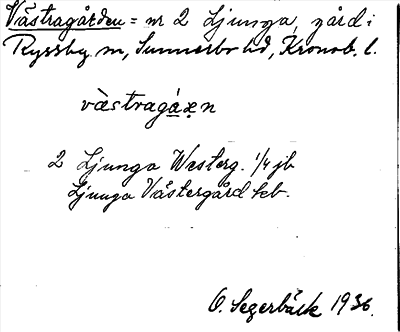 Västragården = nr 2 Ljunga, gård i
Ryssby sn, Sunnerbo hd, Kronob. l.
västragáṣn
2 Ljunga Westerg. 1/4 jb
Ljunga Västergård keb.
O. Segerbäck 1936.